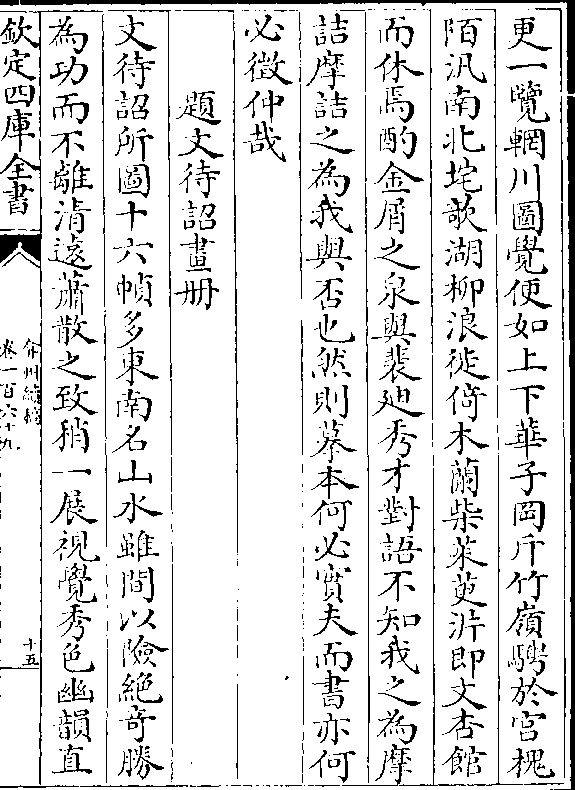 更一覽輞川圖覺便如上下華子岡斤竹嶺騁於宮槐
陌汎南北垞欹湖柳浪徙倚木蘭柴茱萸沜即文杏館
而休焉酌金屑之泉與裴廸秀才對語不知我之為摩
詰摩詰之為我與否也然則摹本何必實夫而書亦何
必徴仲哉
題文待詔畫册
文待詔所圖十六幀多東南名山水雖間以險絶竒勝
為功而不離清遠蕭散之致稍一展視覺秀色幽韻直
欽定四庫全書
弇州續稿
卷一百六十九
十五